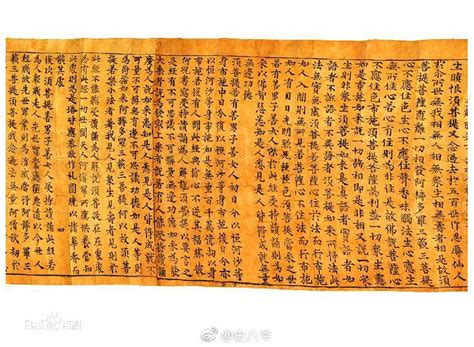 生瞋恨須菩提又念過去於五百世作忍辱仙人
於尒所世無我相無人相無眾生相無壽者相是故須
菩提菩薩應離一切相發阿耨多羅三藐三菩提
心不應住色生心不應住聲香味觸法生心應生
無所住心若心有住則為非住是故佛說菩薩心
不應住色布施須菩提菩薩為利益一切眾生應
如是布施如來說一切諸相即是非相又說一切眾
生則非眾生須菩提如來是真語者實語者如
語者不誑語者不異語者須菩提如來所得法此
法無實無虛須菩提若菩薩心住於法而行布施
如人入闇則無所見若菩薩心不住法而行布施
如人有目日光明照見種種色須菩提當來之世
若有善男子善女人能於此經受持讀誦則為如
來以佛智慧悉知是人悉見是人皆得成就無量
無邊功德
須菩提若有善男子善女人初日分以恒河沙等
身布施中日分復以恒河沙等身布施後日分亦
以恒河沙等身布施如是無量百千萬億劫以身
布施若復有人聞此經典信心不逆其福勝彼
何況書寫受持讀誦為人解說須菩提以要言之
是經有不可思議不可稱量無邊功德如來為發
大乘者說為發最上乘者說若有人能受持讀誦
廣為人說如來悉知是人悉見是人皆得成就不
可量不可稱無有邊不可思議功德如是人等則
為荷擔如來阿耨多羅三藐三菩提何以故須菩
提若樂小法者著我見人見眾生見壽者見則於
此經不能聽受讀誦為人解說須菩提在在處處
若有此經一切世間天人阿修羅所應供養當知
此處則為是塔皆應恭敬作禮圍繞以諸華香而
散其處
復次須菩提善男子善女人受持讀誦此經若
為人輕賤是人先世罪業應墮惡道以今世人
輕賤故先世罪業則為消滅當得阿耨多羅三
藐三菩提須菩提我念過去無量阿僧祇劫於
Baidu百科
@史八爷